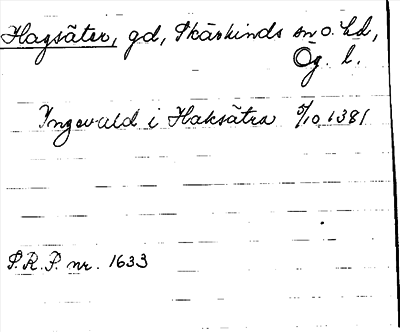 Hagsäter, gd, Skärkinds sn o. hd,
Ög. l.
Ingevald i Haksätra 5/10 1381
S.R.P. nr. 1633